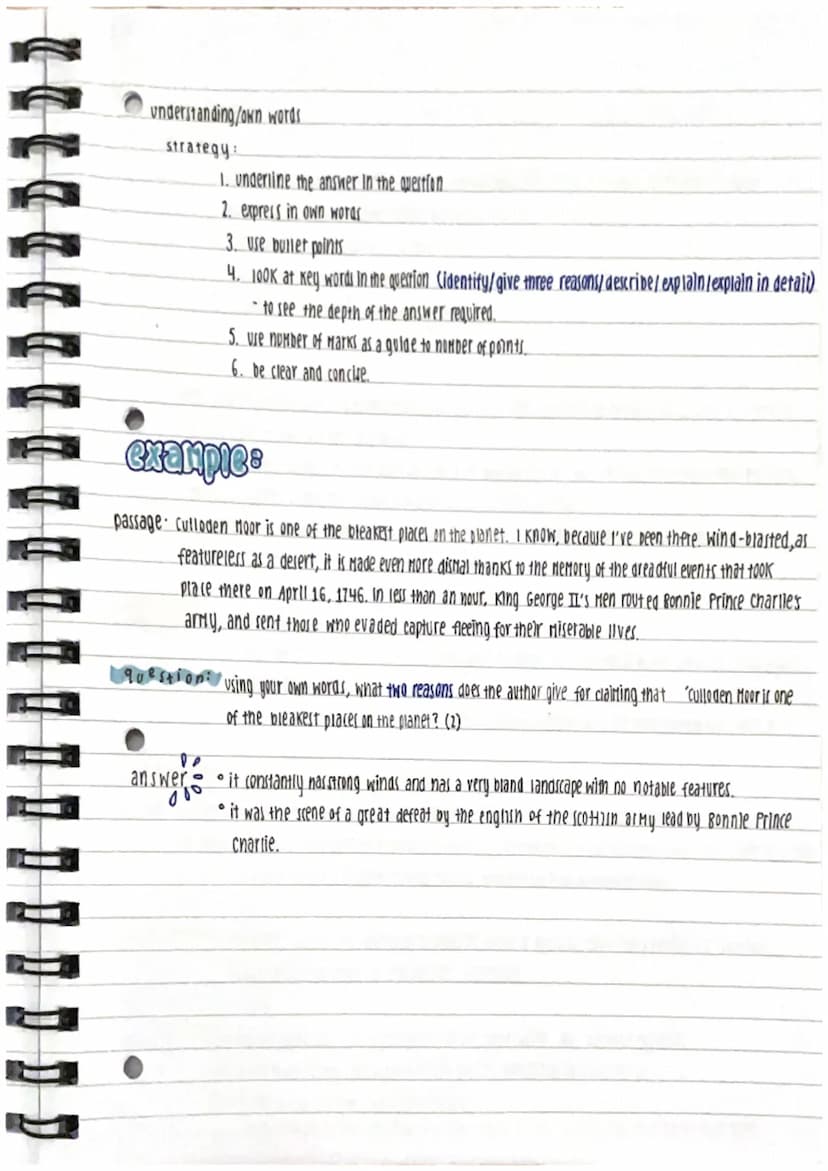 understanding/own words
strategy:
1. underline the answer in the question
2. express in own words
3. use bullet points
4. look at key words in the question (identify/give three reasons/describe/explain/explain in detail)
- to see the depth of the answer required.
5. use number of marks as a guide to number of points.
6. be clear and concise.
example:
passage: Culloden Moor is one of the bleakest places on the planet. I know, because I've been there. Wind-blasted, as
featureless as a desert, it is made even more dismal thanks to the memory of the dreadful events that took
place there on April 16, 1746. In less than an hour, King George II's men routed Bonnie Prince Charlie's
army, and sent those who evaded capture fleeing for their miserable lives.
question: using your own words, what two reasons does the author give for claiming that "Culloden Moor is one
of the bleakest places on the planet? (2)
answer: • it constantly has strong winds and has a very bland landscape with no notable features.
• it was the scene of a great defeat by the english of the scottish army lead by Bonnie Prince
Charlie.